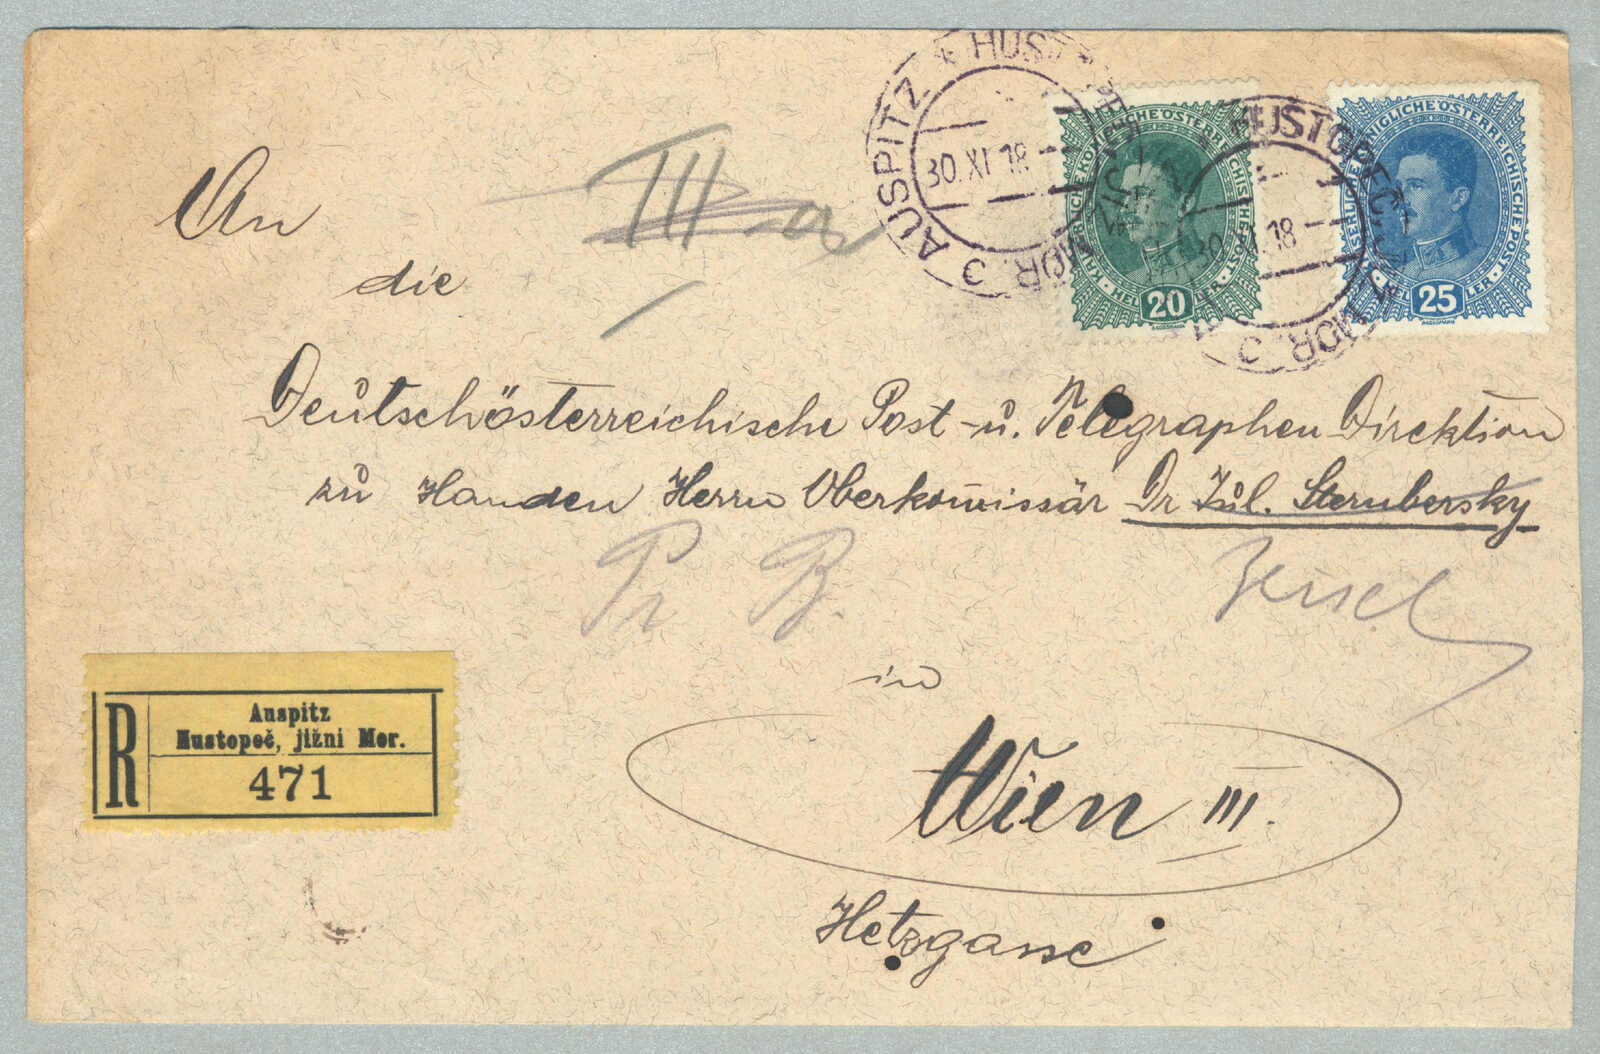 AUSPITZ * HUSTOPEČ, JIŽNÍ MOR. C
30.XI.18
KAISERLICHE KÖNIGLICHE ÖSTERREICHISCHE POST
20 HELLER
AUSPITZ * HUSTOPEČ, JIŽNÍ MOR. C
30.XI.18
KAISERLICHE KÖNIGLICHE ÖSTERREICHISCHE POST
25 HELLER
III a
An
die
Deutschösterreichische Post- u. Telegraphen Direktion
zu Handen Herrn Oberkom̄issär Dr Jul. Sternbersky
Pr B.
in
Wien III.
Hetzgasse
R
Auspitz
Hustopeč, jižni Mor.
471